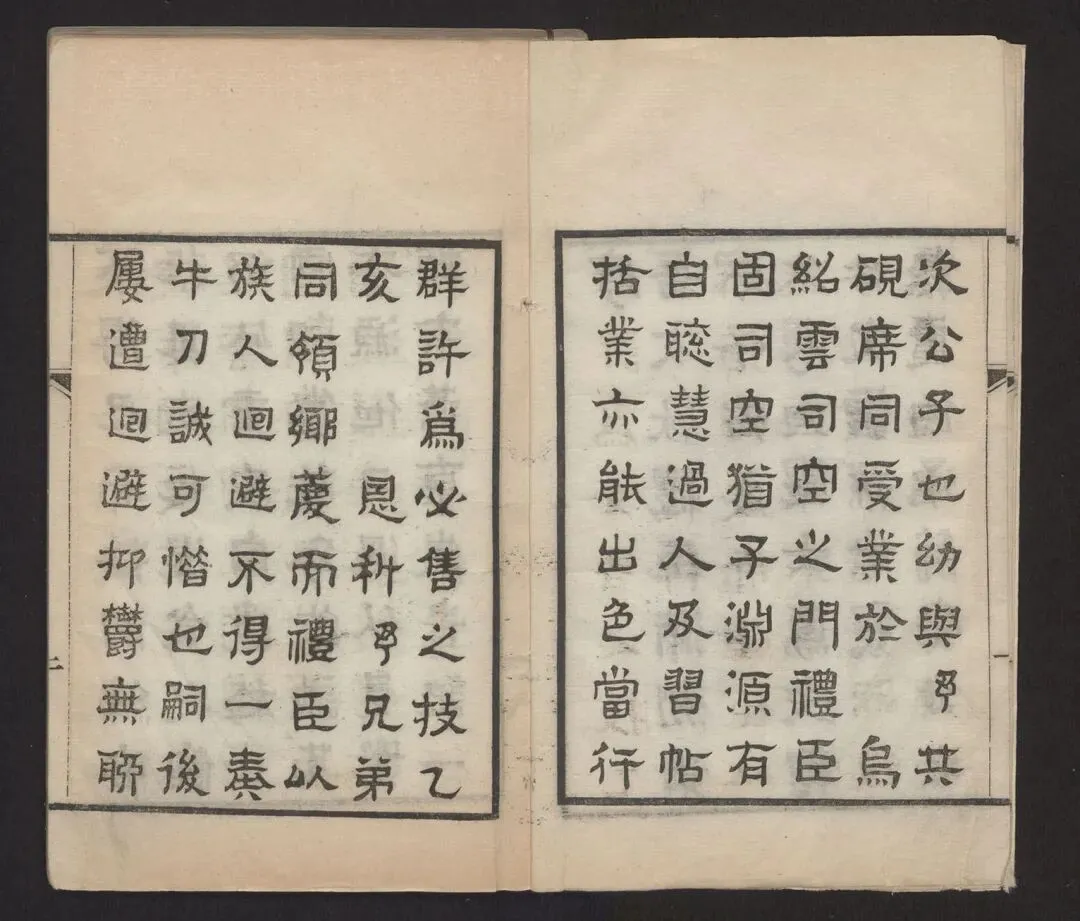 次公子也幼與予共
硯席同受業於烏
紹雲司空之門禮臣
固司空猶子淵源有
自聰慧過人及習帖
括業亦能出色當行
群許爲必售之技乙
亥恩科予兄弟
同領鄉薦而禮臣以
族人迴避不得一奏
牛刀誠可惜也嗣後
屢遭迴避抑鬱無聊
二